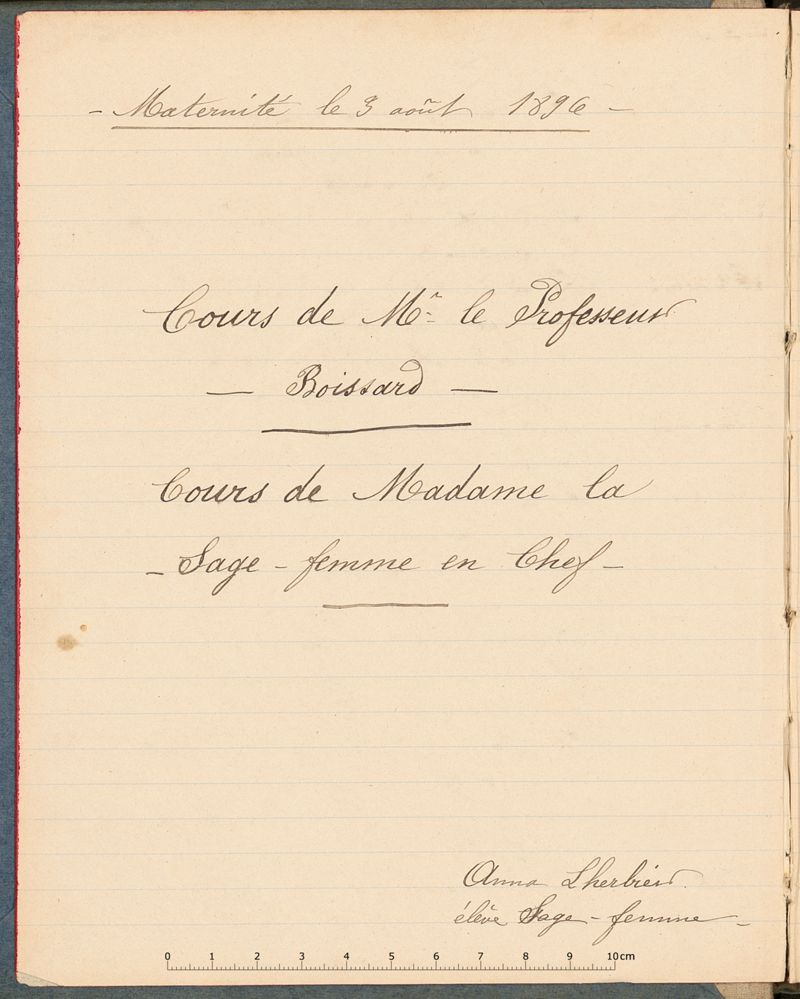 - Maternité le 3 août 1896 -
Cours de Mr le Professeur
— Boissard —
Cours de Madame la
- Sage-femme en Chef -
Anna Lherbier
élève Sage-femme -
0 1 2 3 4 5 6 7 8 9 10cm